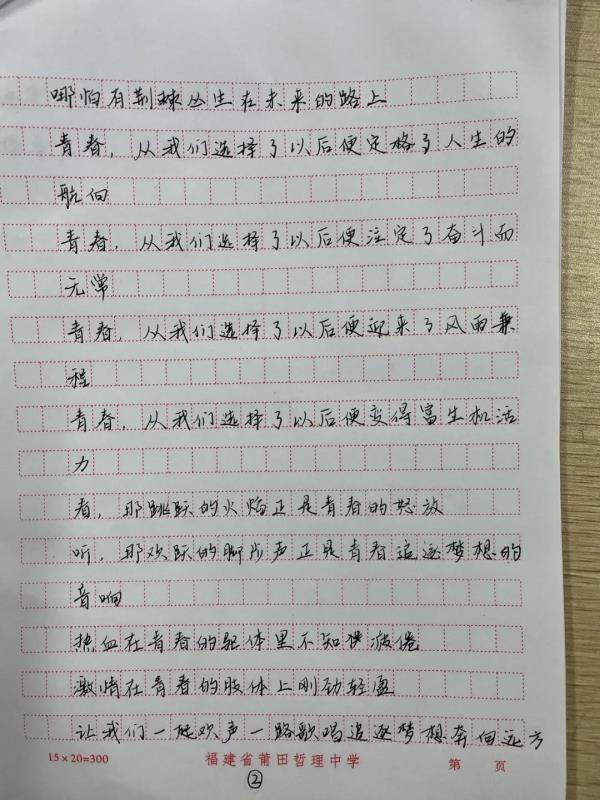 哪怕有荆棘丛生在未来的路上
青春，从我们选择了以后便定格了人生的
航向
青春，从我们选择了以后便注定了奋斗而
无常
青春，从我们选择了以后便迎来了风雨兼
程
青春，从我们选择了以后便变得富生机活
力
看，那跳跃的火焰正是青春的怒放
听，那欢跃的脚步声正是青春追逐梦想的
音响
热血在青春的躯体里不知疲倦
激情在青春的肢体上刚劲轻盈
让我们一起欢声一路歌唱追逐梦想奔向远方
15×20=300 福建省莆田哲理中学 第 页
②